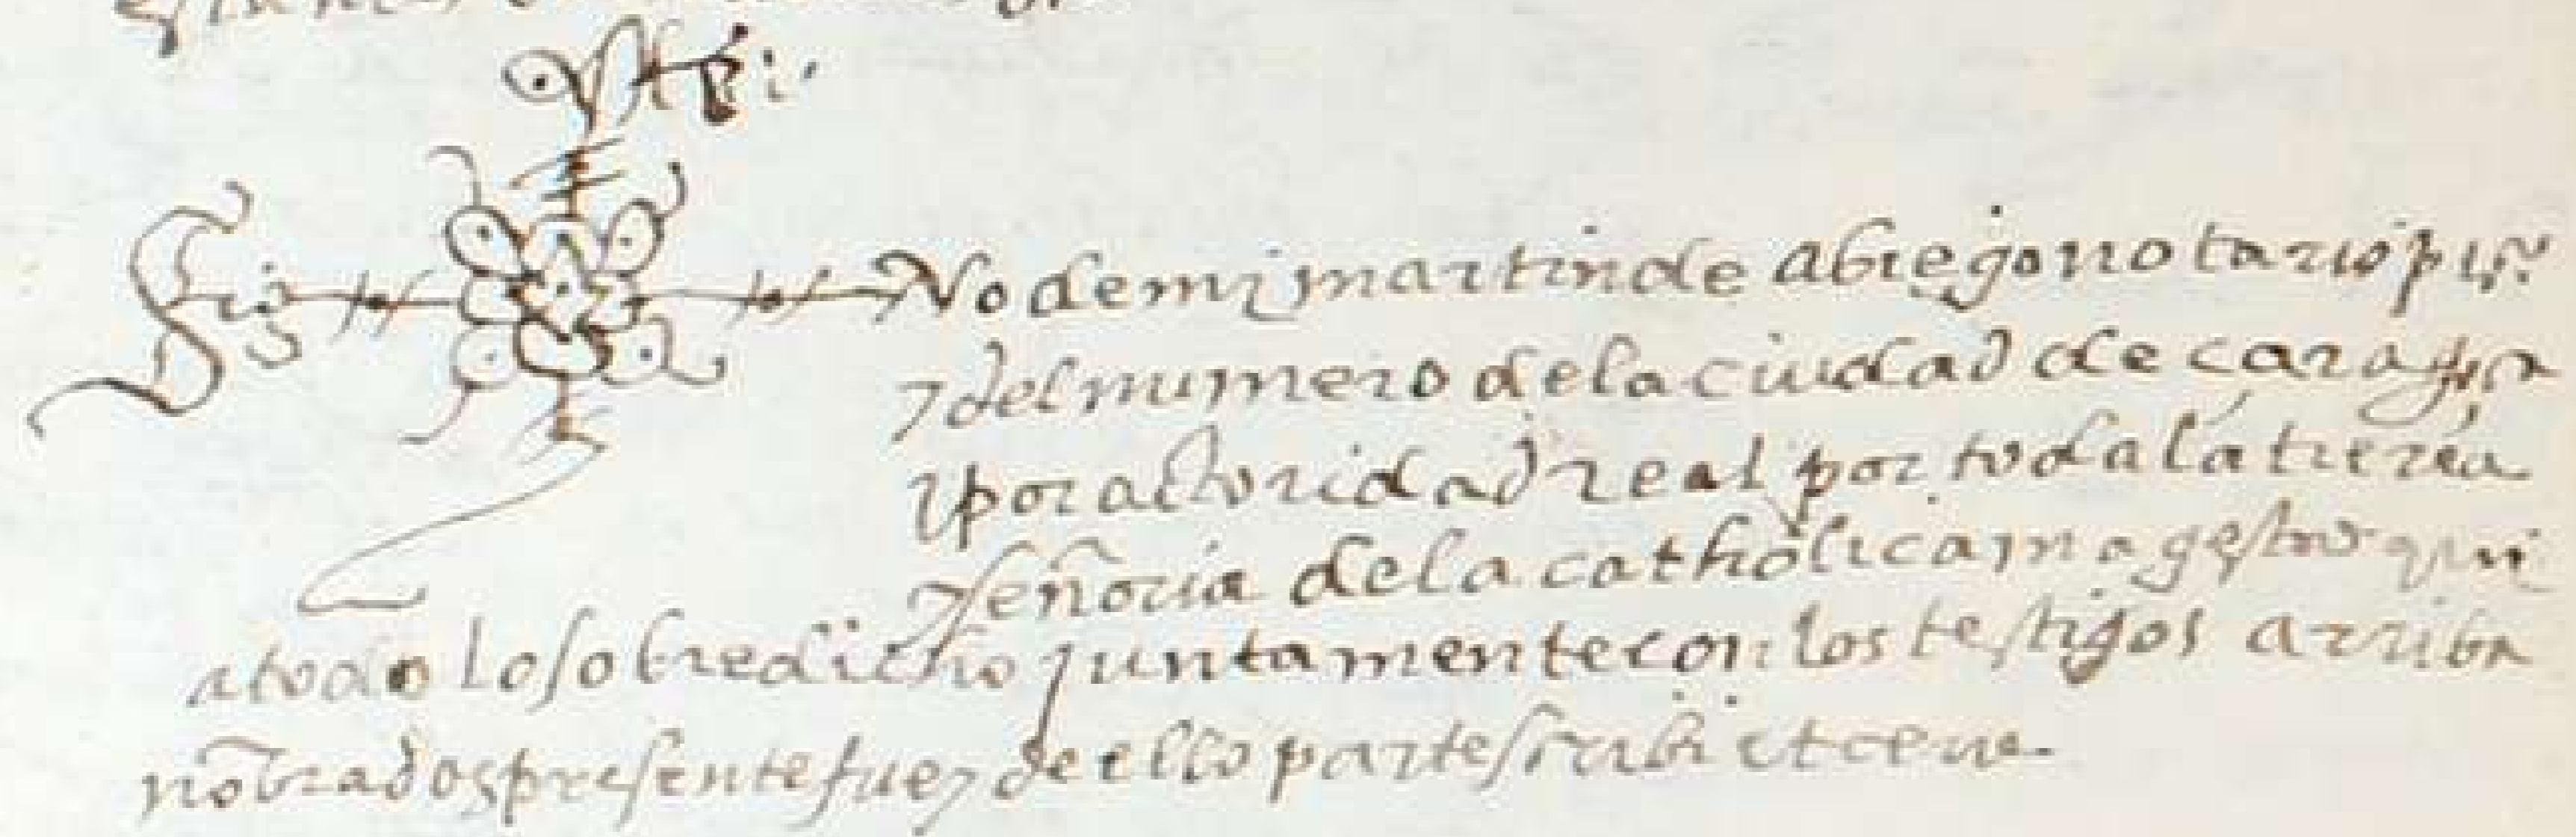 Sig No de mi martin de abiego notario pu.co
y del numero de la ciudad de çaragoça
y por actoridad real por toda la tierra
y señoria de la catholica magestad qui
a todo lo sobredicho juntamente con los testigos arriba
nõbrados presente fue y de ello parte scribi et cerre